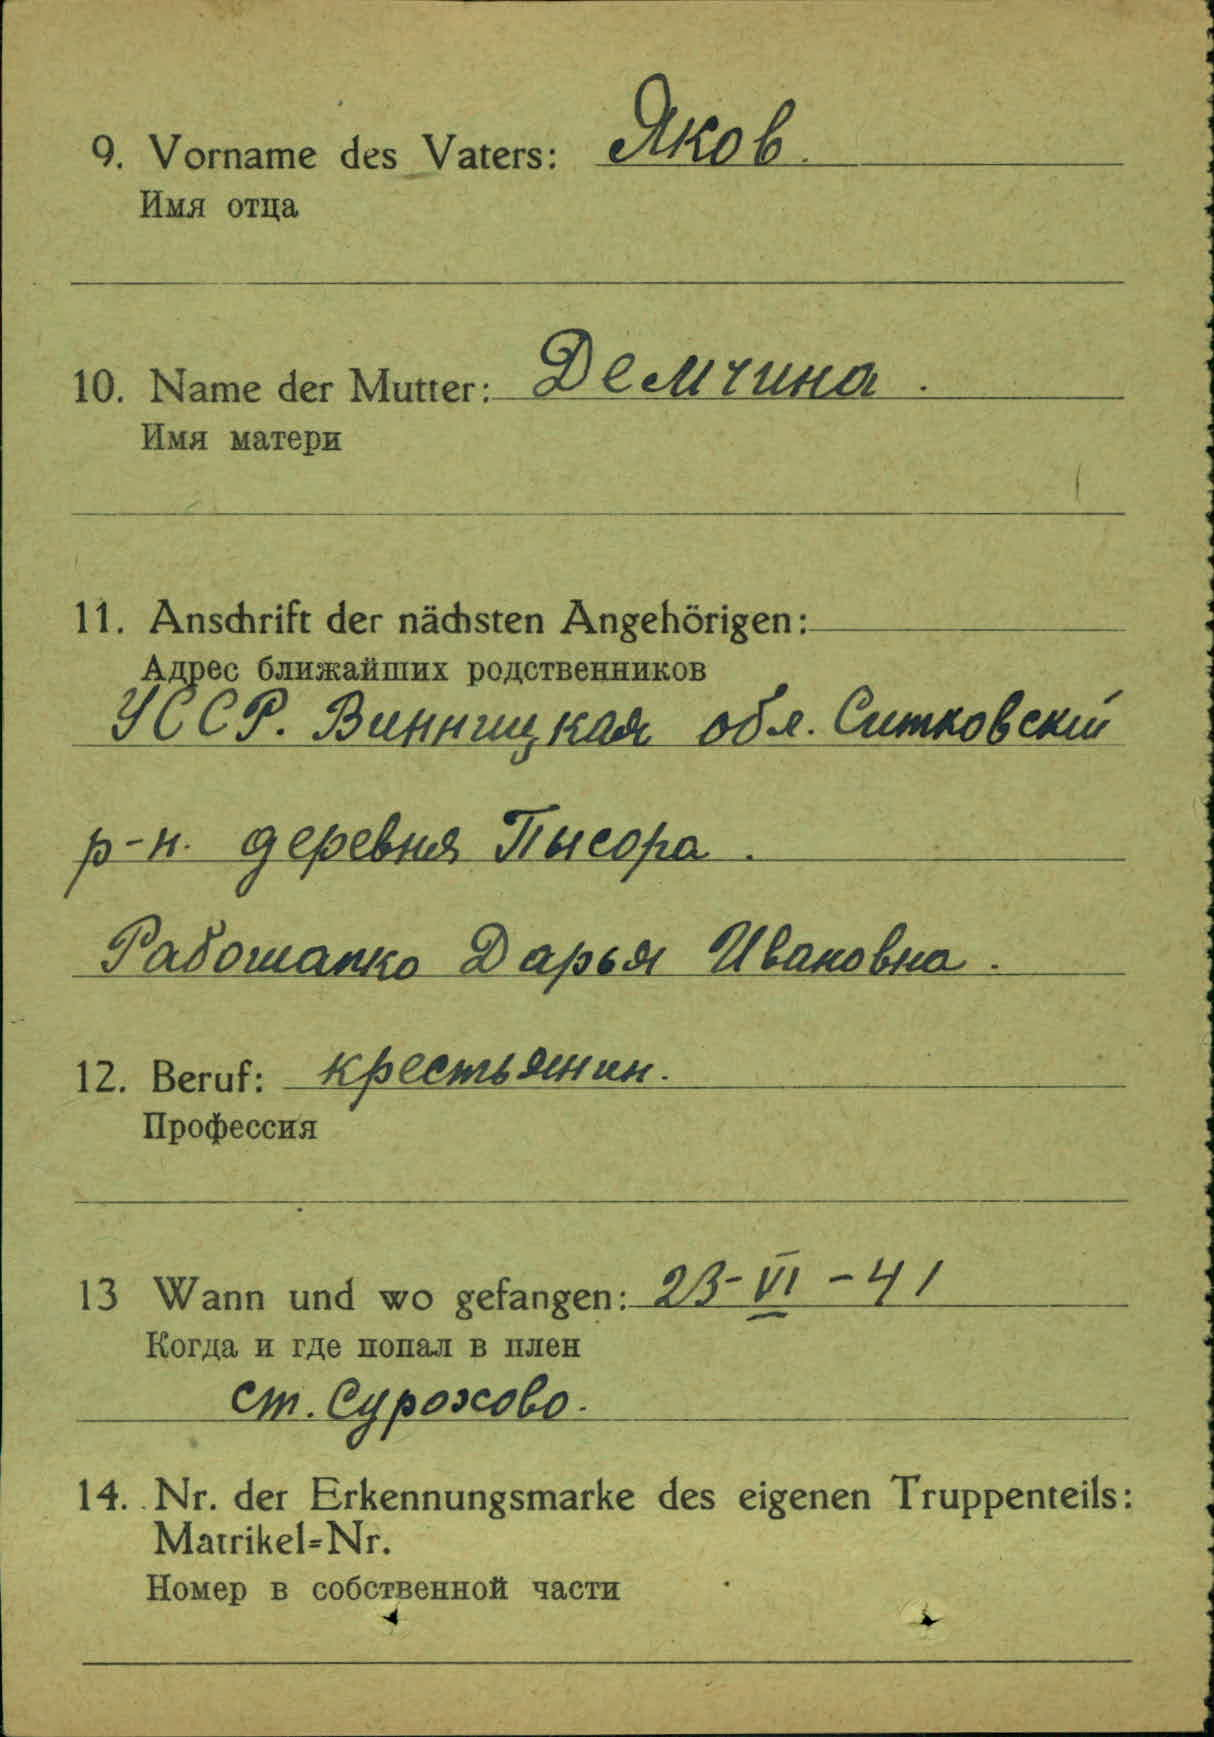 9. Vorname des Vaters: Яков.
Имя отца
10. Name der Mutter: Демчина.
Имя матери
11. Anschrift der nächsten Angehörigen:
Адрес ближайших родственников
УССР. Винницкая обл. Ситковскій
р-н. деревня Пысора.
Рабошапко Дарья Ивановна.
12. Beruf: крестьянин.
Профессия
13 Wann und wo gefangen: 23-VI-41
Когда и где попал в плен
ст. Сурожово.
14. Nr. der Erkennungsmarke des eigenen Truppenteils:
Matrikel=Nr.
Номер в собственной части